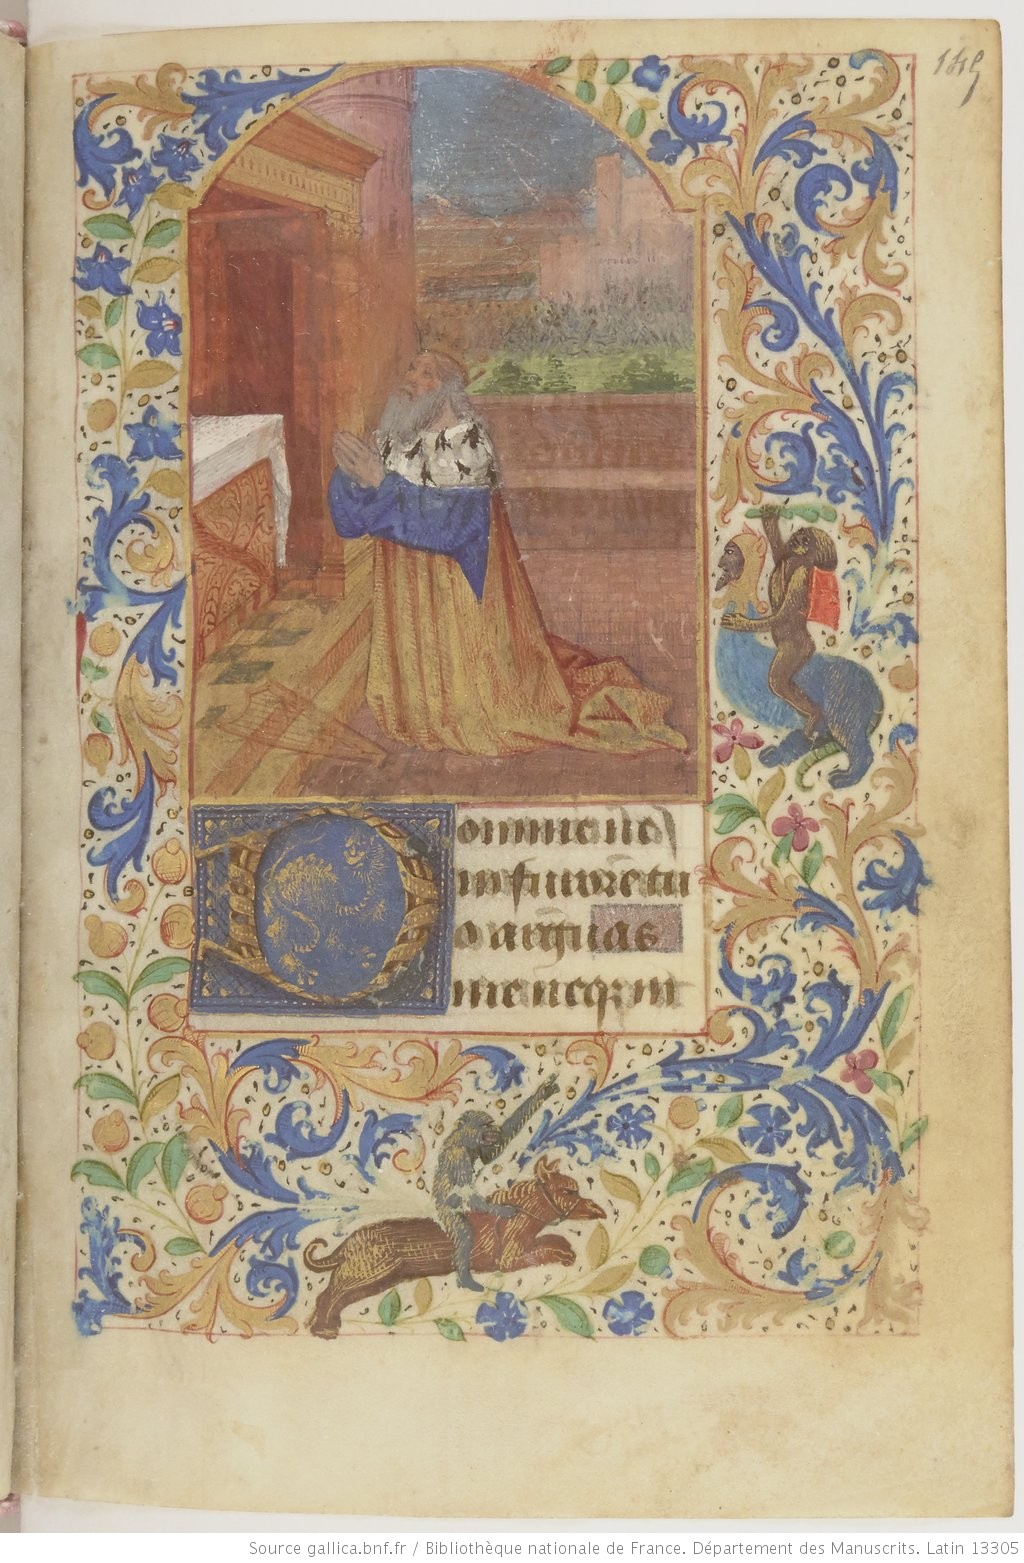 149
Domine ne
in furorē tu
o arguas
me neq̄ in
Source gallica.bnf.fr / Bibliothèque nationale de France. Département des Manuscrits. Latin 13305